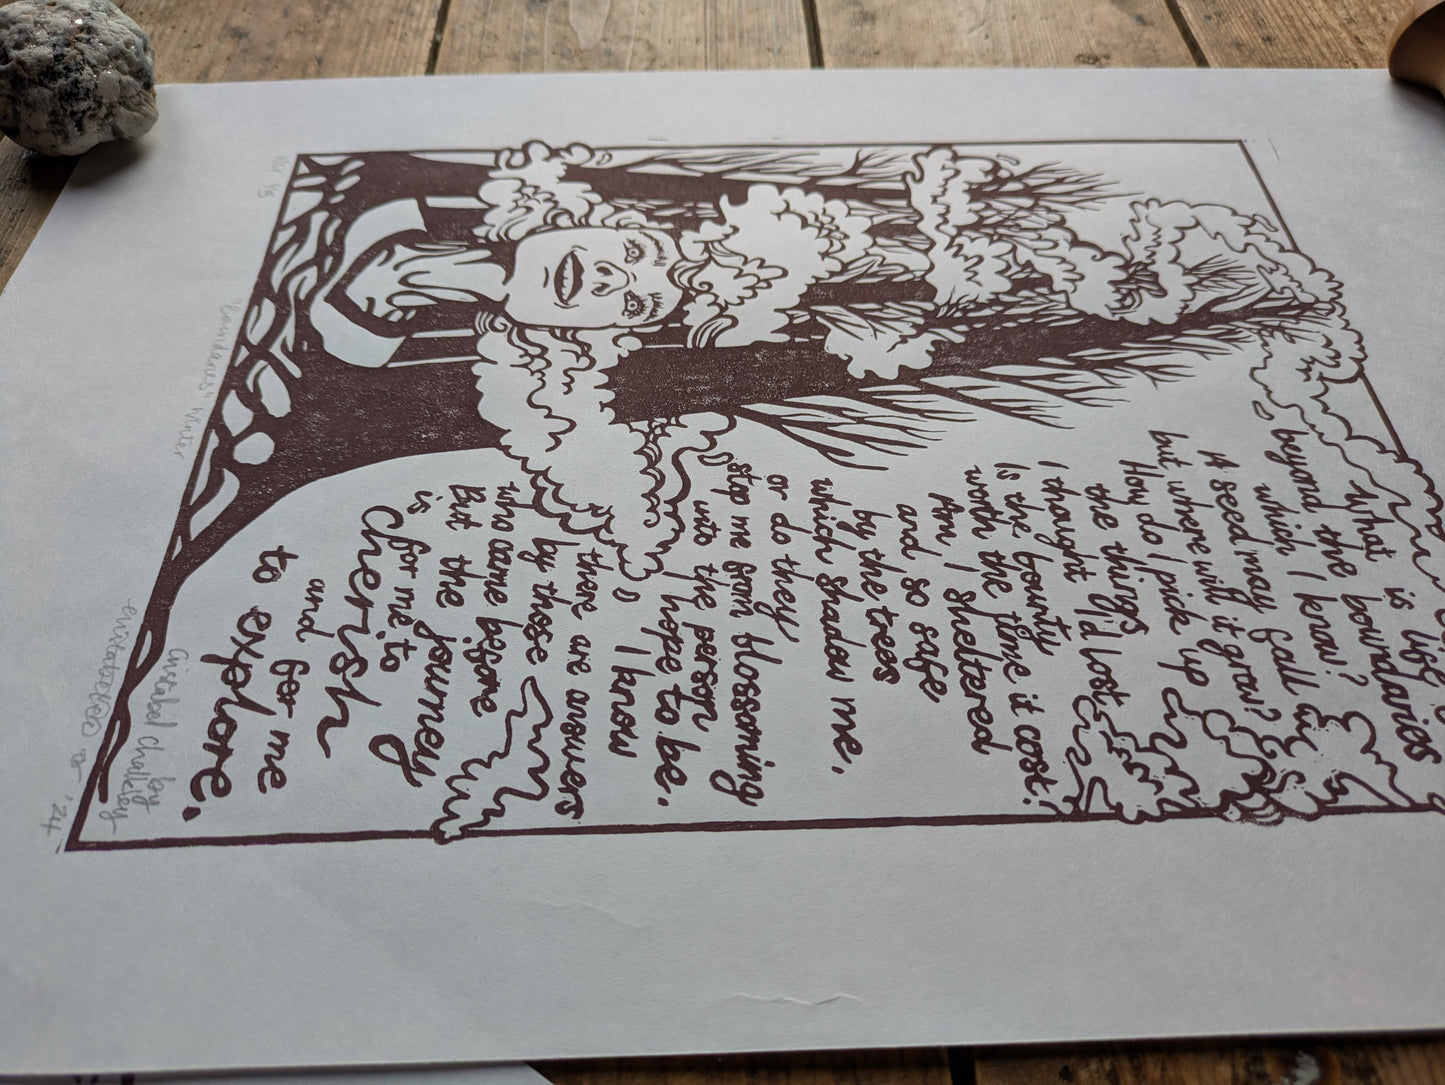 life
What is
beyond the boundaries
which I know?
A seed may fall
but where will it grow?
How do I pick up
the things I'd lost
I thought
Is the bounty
worth the time it cost?
Am I sheltered
and so safe
by the trees
which shadow me.
or do they
stop me from blossoming
into the person
I hope to be.
I know
there are answers
by those
who came before
But the journey
is for me to
cherish
and for me
to explore.
by
Christabel Chalkley
'24